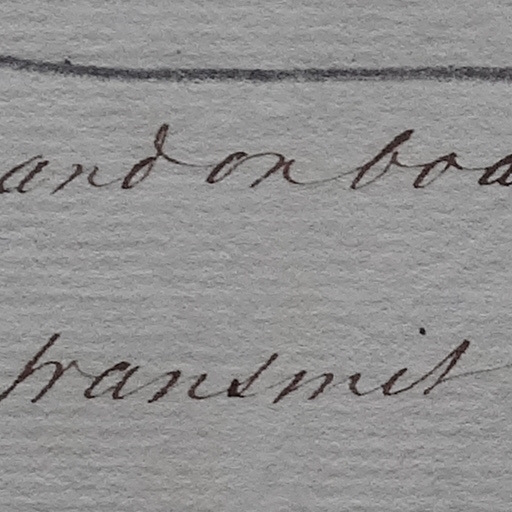 and on boa
transmit